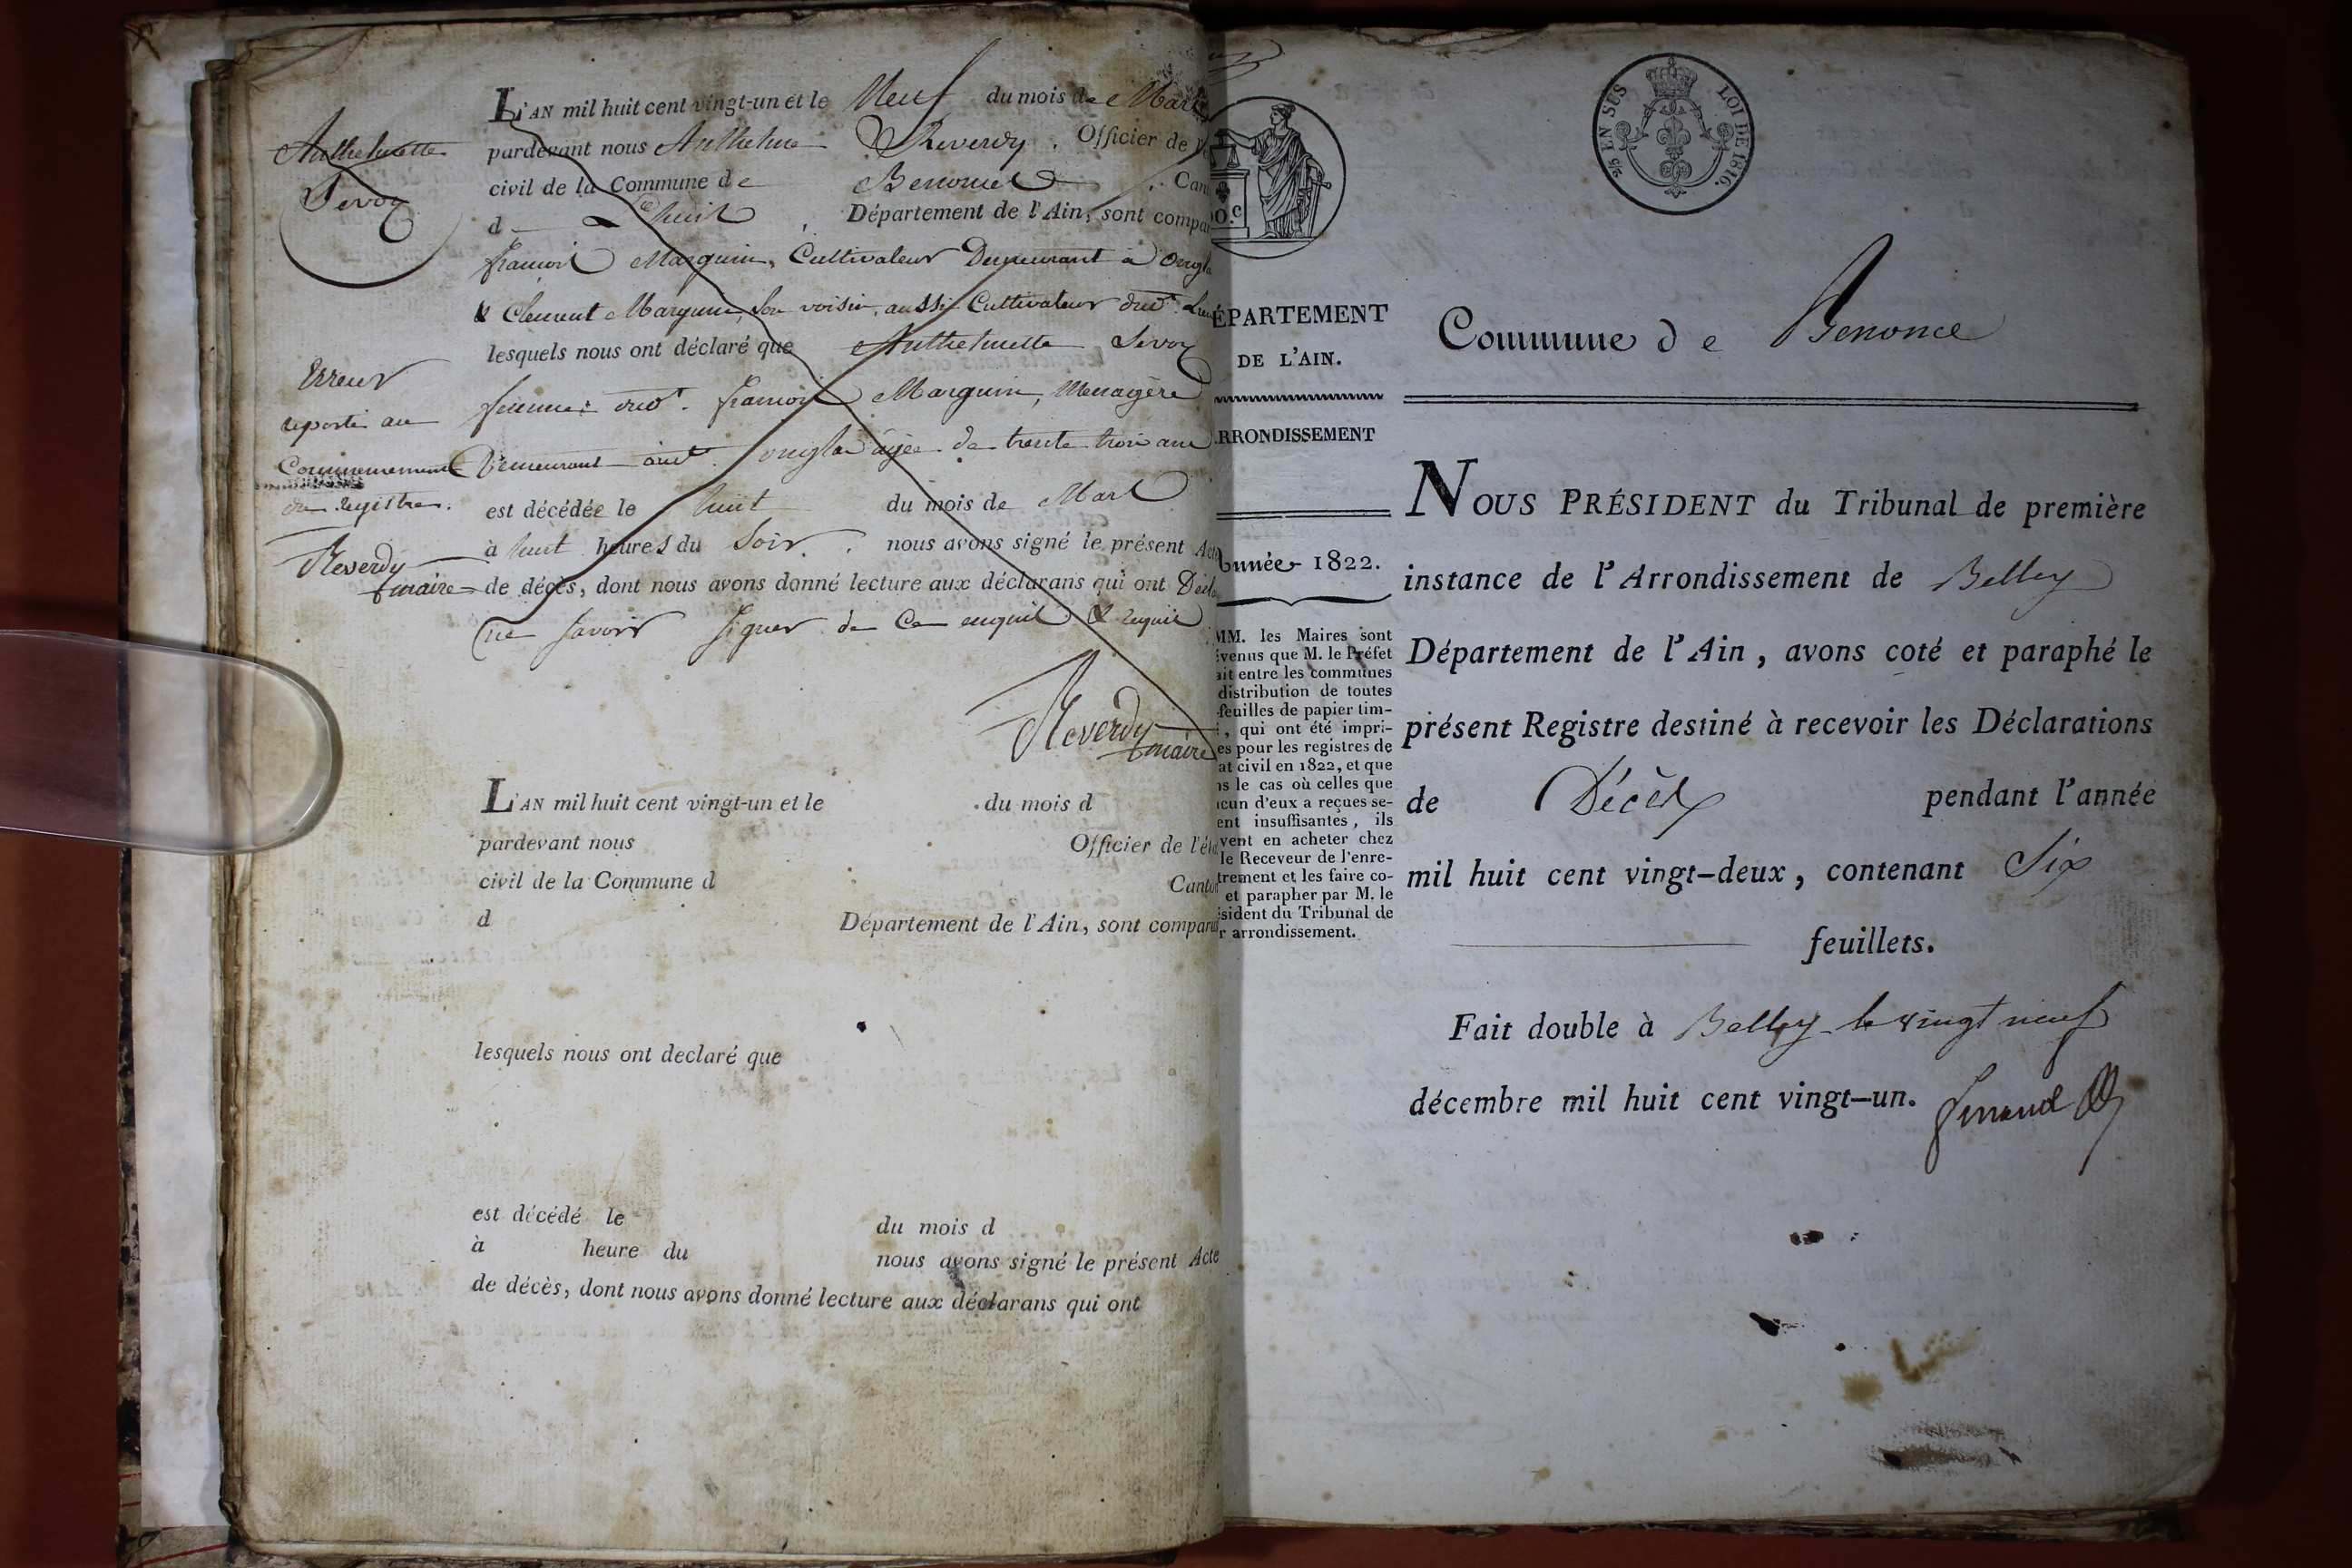 Anthelmette
Sevoz
L'AN mil huit cent vingt-un et le Neuf du mois de Mars
pardevant nous Anthelme Reverdy, Officier de l'é
civil de la Commune de Benonce, Cant
d Lhuis, Département de l'Ain, sont compar
françois Marguin, Cultivateur Demeurant à Ongla
& Clement Marguin, son voisin, aussi Cultivateur dud. Lieu
lesquels nous ont déclaré que Anthelmette Sevoz
femme dud. françois Marguin, Menagère
Demeurant aud. Onglas agée de trente trois ans
est décédée le huit du mois de Mars
à huit heures du Soir, nous avons signé le présent Acte
de décès, dont nous avons donné lecture aux déclarans qui ont Décla
ne savoir signer de ce enquis & requis
Reverdy
maire
Erreur
reporté au
Commencement
du registre.
Reverdy
maire
L'AN mil huit cent vingt-un et le du mois d
pardevant nous Officier de l'éta
civil de la Commune d Canton
d Département de l'Ain, sont comparus
lesquels nous ont declaré que
est décédé le du mois d
à heure du nous avons signé le présent Acte
de décès, dont nous avons donné lecture aux déclarans qui ont
O.c
ÉPARTEMENT
DE L'AIN.
RRONDISSEMENT
Année 1822.
MM. les Maires sont
évenus que M. le Préfet
ait entre les communes
distribution de toutes
feuilles de papier tim-
, qui ont été impri-
es pour les registres de
at civil en 1822, et que
ns le cas où celles que
acun d'eux a reçues se-
ent insuffisantes, ils
vent en acheter chez
le Receveur de l'enre-
trement et les faire co-
et parapher par M. le
ésident du Tribunal de
r arrondissement.
2/5 EN SUS LOI DE 1816.
Commune de Benonce
NOUS PRÉSIDENT du Tribunal de première
instance de l'Arrondissement de Belley
Département de l'Ain, avons coté et paraphé le
présent Registre destiné à recevoir les Déclarations
de Décès pendant l'année
mil huit cent vingt-deux, contenant Six
feuillets.
Fait double à Belley le vingt neuf
décembre mil huit cent vingt-un.